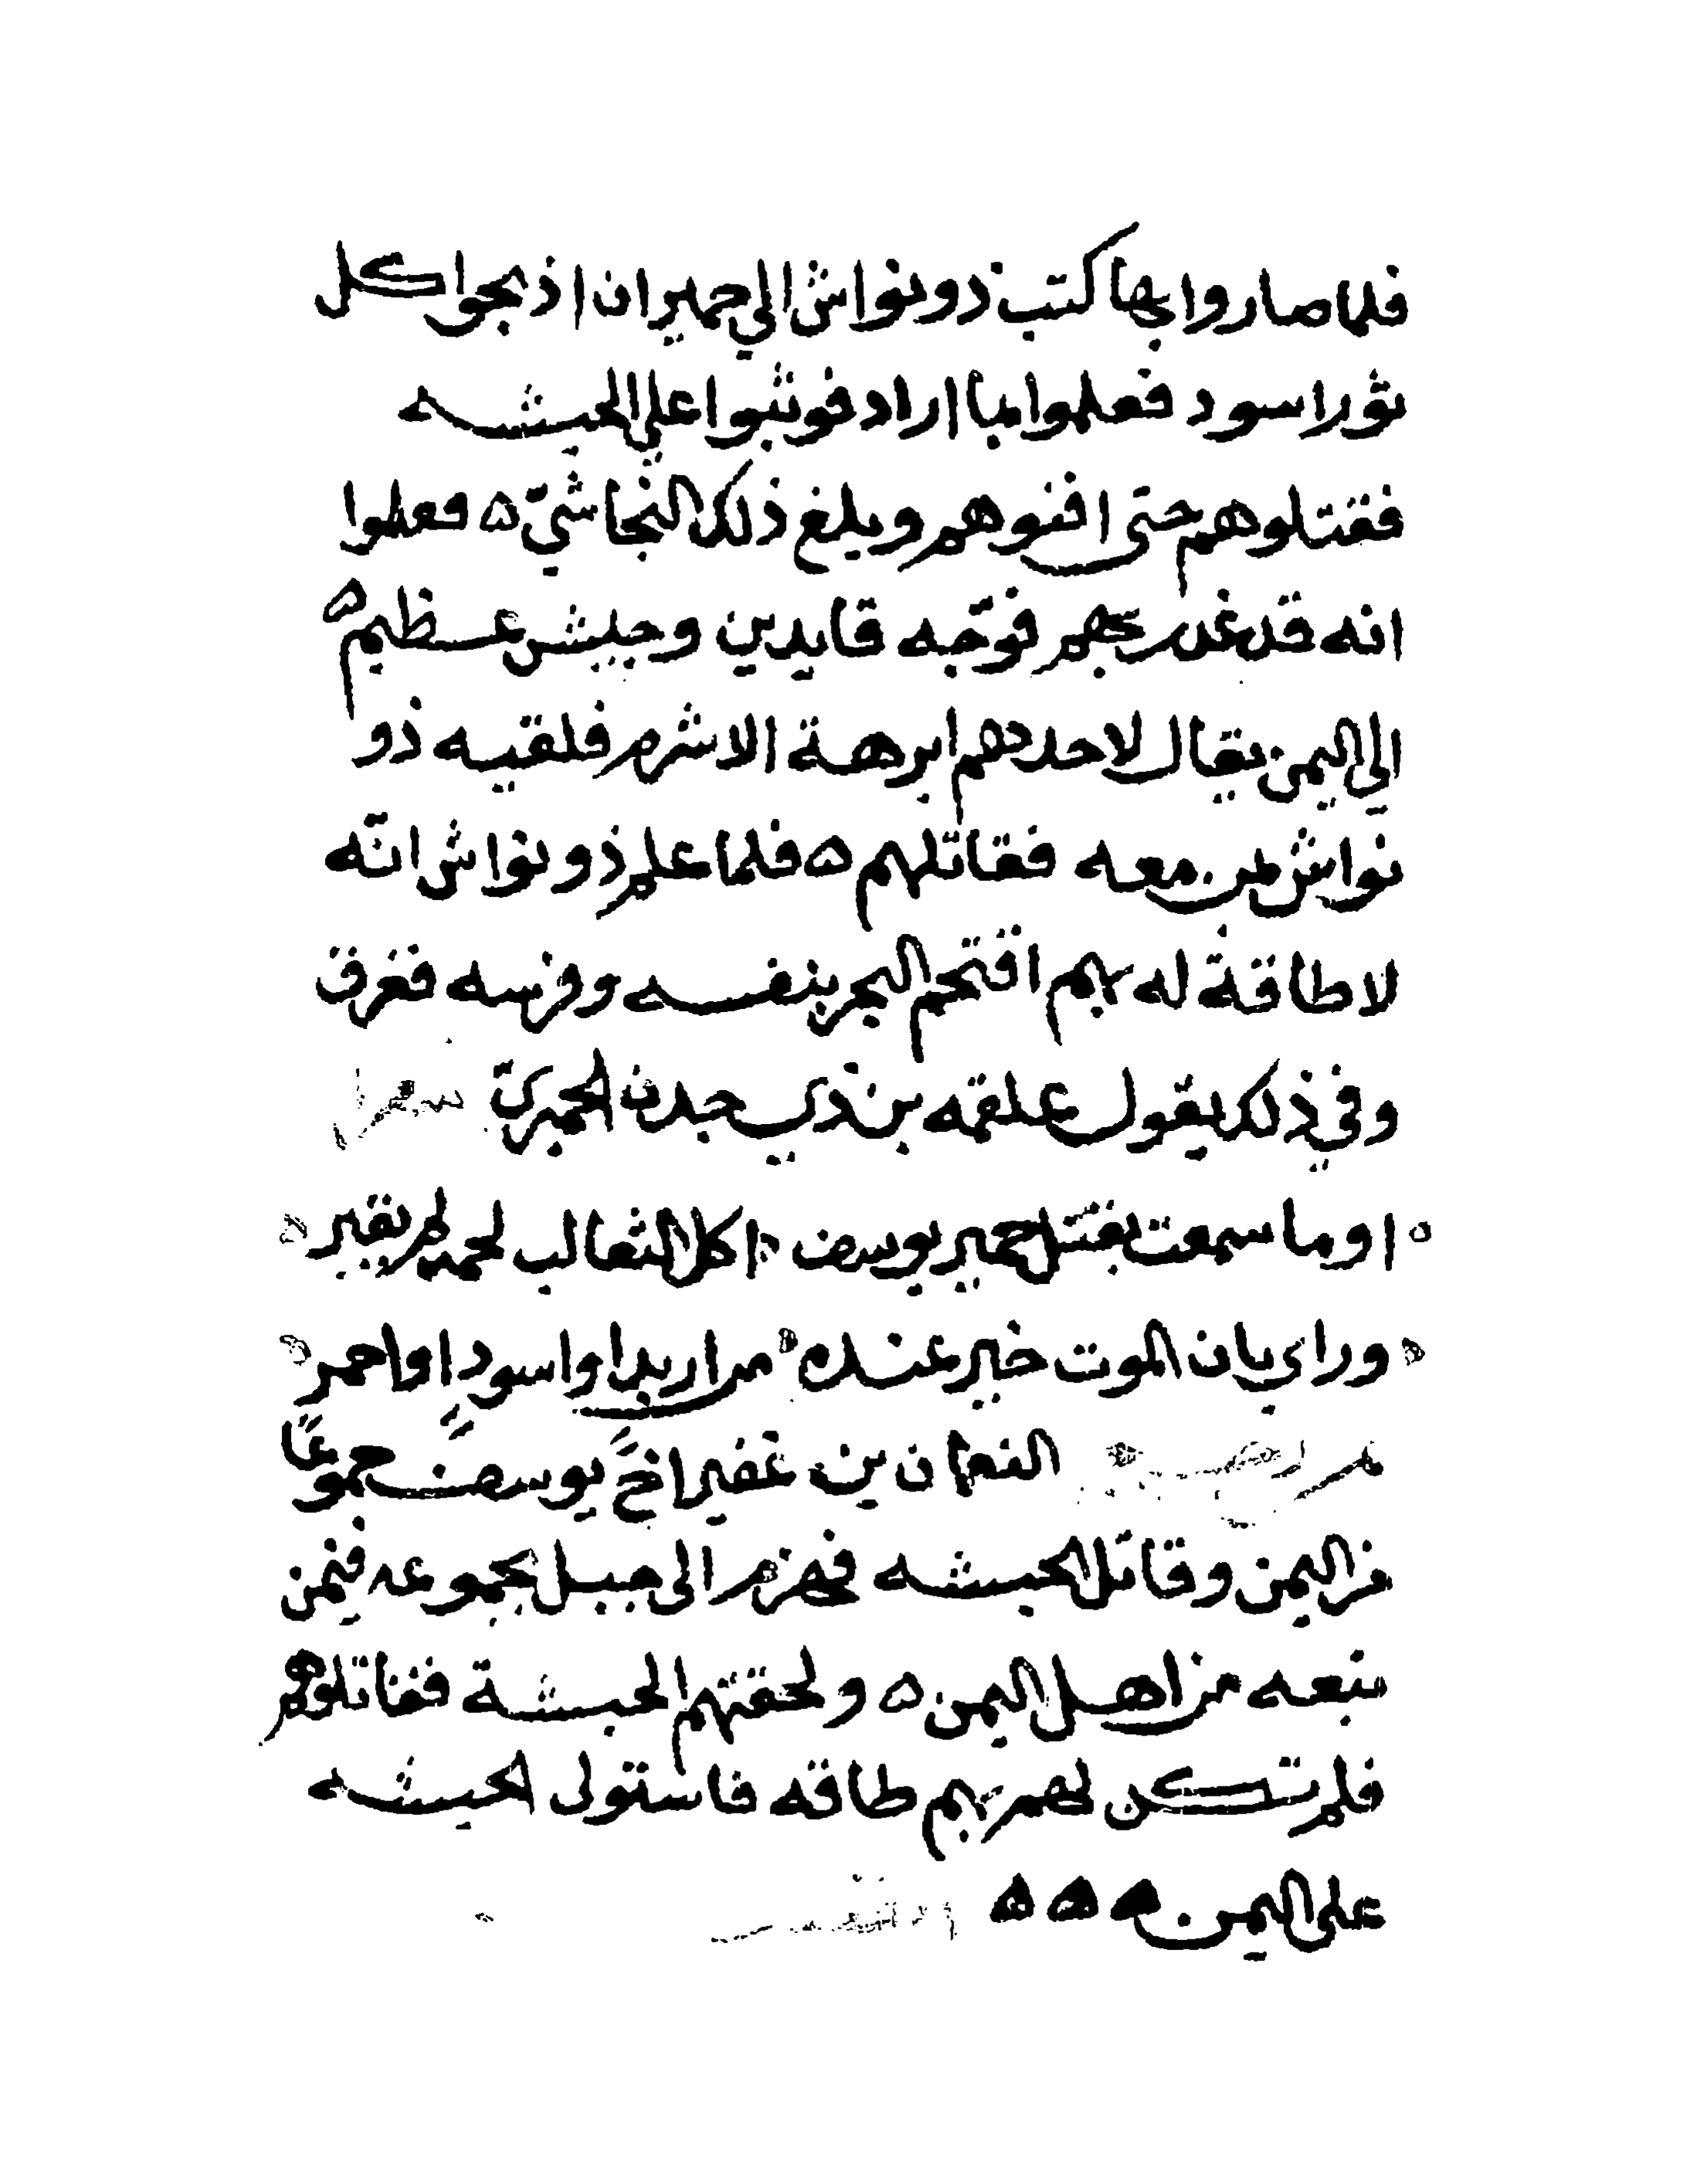 فلما صاروا بها كتب ذو نواش الي حمير ان اذبحوا كل
ثورا سود فعلموا ما اراد فوثبوا على الحبشه
فقتلوهم حتى افنوهم وبلغ ذلك النجاشيّ ه فعلموا
انه قد غدر بهم فوجّه قايدين وجيش عظيم ه
الي اليمن يقال لاحدهم ابرهة الاشرم فلقيه ذو
نواش من معه فقاتلهم ه فلما علم ذو نواش انّه
لا طاقة له بهم اقتحم البحر بنفسه وفرسه فغرق
وفي ذلك يقول علقمه بن ذي جدن الحميريّ
اوما سمعت بقتل حمير يوسف اكل الثعالب لحمه لم يقبر
وراي بان الموت خير عنده من اريدا واسود او احمر
النعمان بن عفير اخيّ يوسف جموعًا
من اليمن وقاتل الحبشه فهزم الى جبل بجموعه فيمن
تبعه من اهل اليمن ه ولحقتهم الحبشة فقاتلوهم
فلم تكن لهم بهم طاقه فاستولى الحبشه
على اليمن ه ه ه